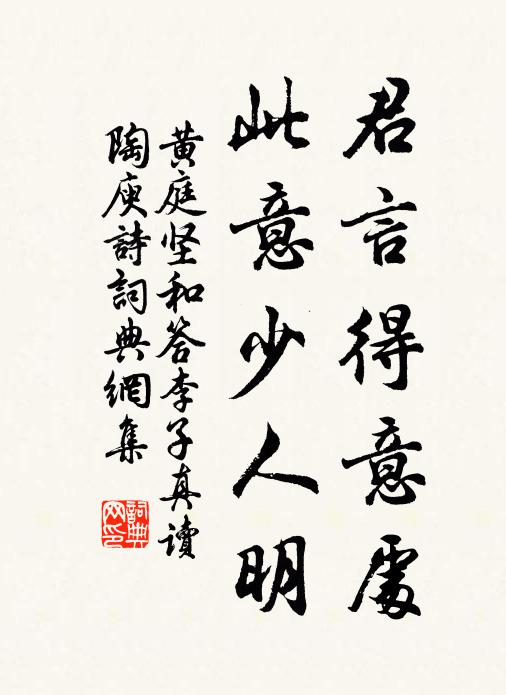 君言得意處
此意少人明
黄庭坚和答李子真讀
陶庾詩詞典網集
詞典
网印